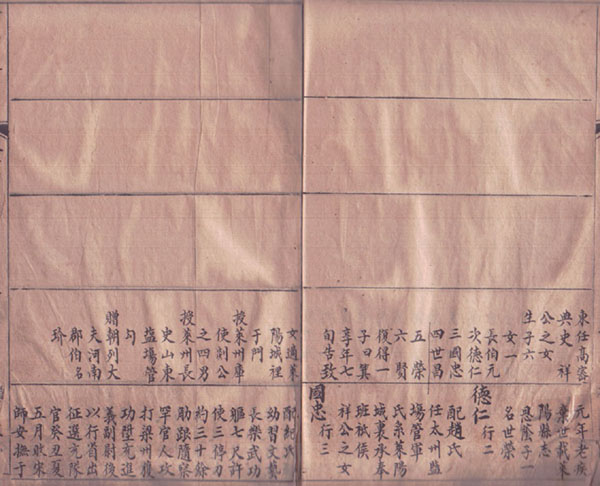 東任高密
典史祥
公之女
生子六
女一
長伯元
次德仁
三國忠
四世昌
五榮
六賢
復得一
子曰巽
享年七
旬告致
女適萊
陽城裡
于門
授萊州庫
使副公
之四男
授萊州長
史山東
塩場管
勾
贈朝列大
夫河南
郡伯名
玠
元年老疾
世載萊
陽縣志
恩蔭子一
名世榮
德仁 行二
配趙氏
任太州監
場管軍
氏系萊陽
城裏承奉
班祗侯
祥公之女
國忠 行三
配紀氏
幼習文藝
長樂武功
軀七尺許
使三停刀
約三十餘
觔跟隨察
罕官人攻
打梁州獲
功陞充進
義副尉後
以行省出
征選充隊
官癸丑夏
五月敗宋
師女撫于